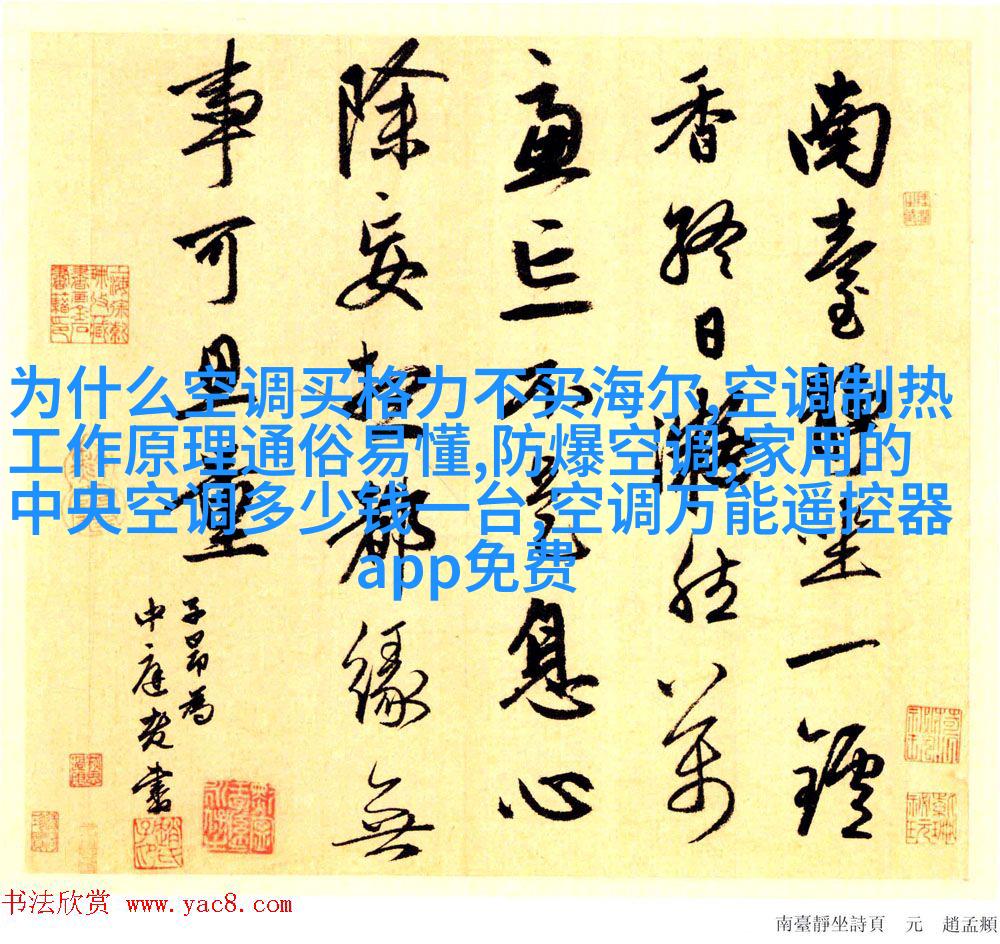 南臺靜坐一鑪
香終日凝然萬
慮亡不是息心
除妄想都緣無
事可思量
子昂為
中庭老書
为什么空调买格力不买海尔,空调制热
工作原理通俗易懂,防爆空调,家用的
中央空调多少钱一台,空调万能遥控器
app免费
书法欣赏 www.yac8.com
南臺靜坐詩頁 元 趙孟頫